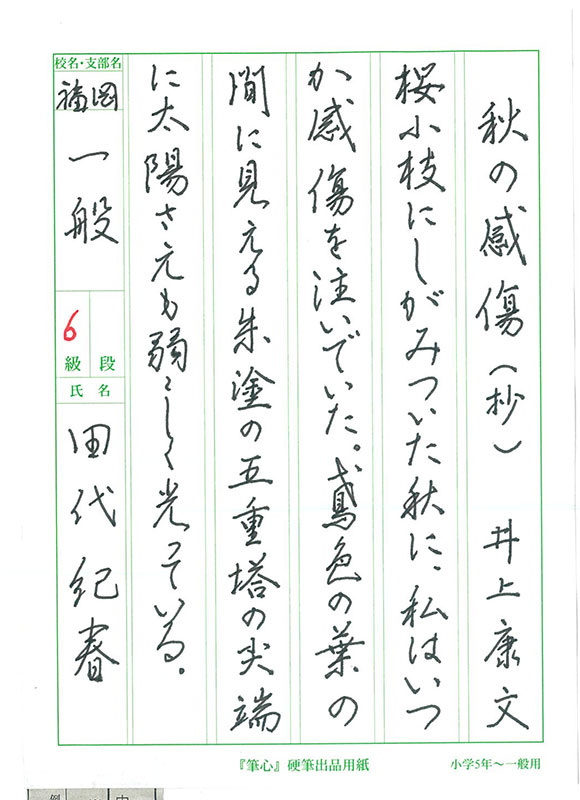 秋の感傷(抄) 井上康文
桜小枝にしがみついた秋に、私はいつ
か感傷を注いでいた。鳶色の葉の
間に見える朱塗の五重塔の尖端
に太陽さえも弱々しく光っている。
校名・支部名
福岡
一般
6
級 段
氏名
田代紀春
『筆心』硬筆出品用紙
小学5年〜一般用